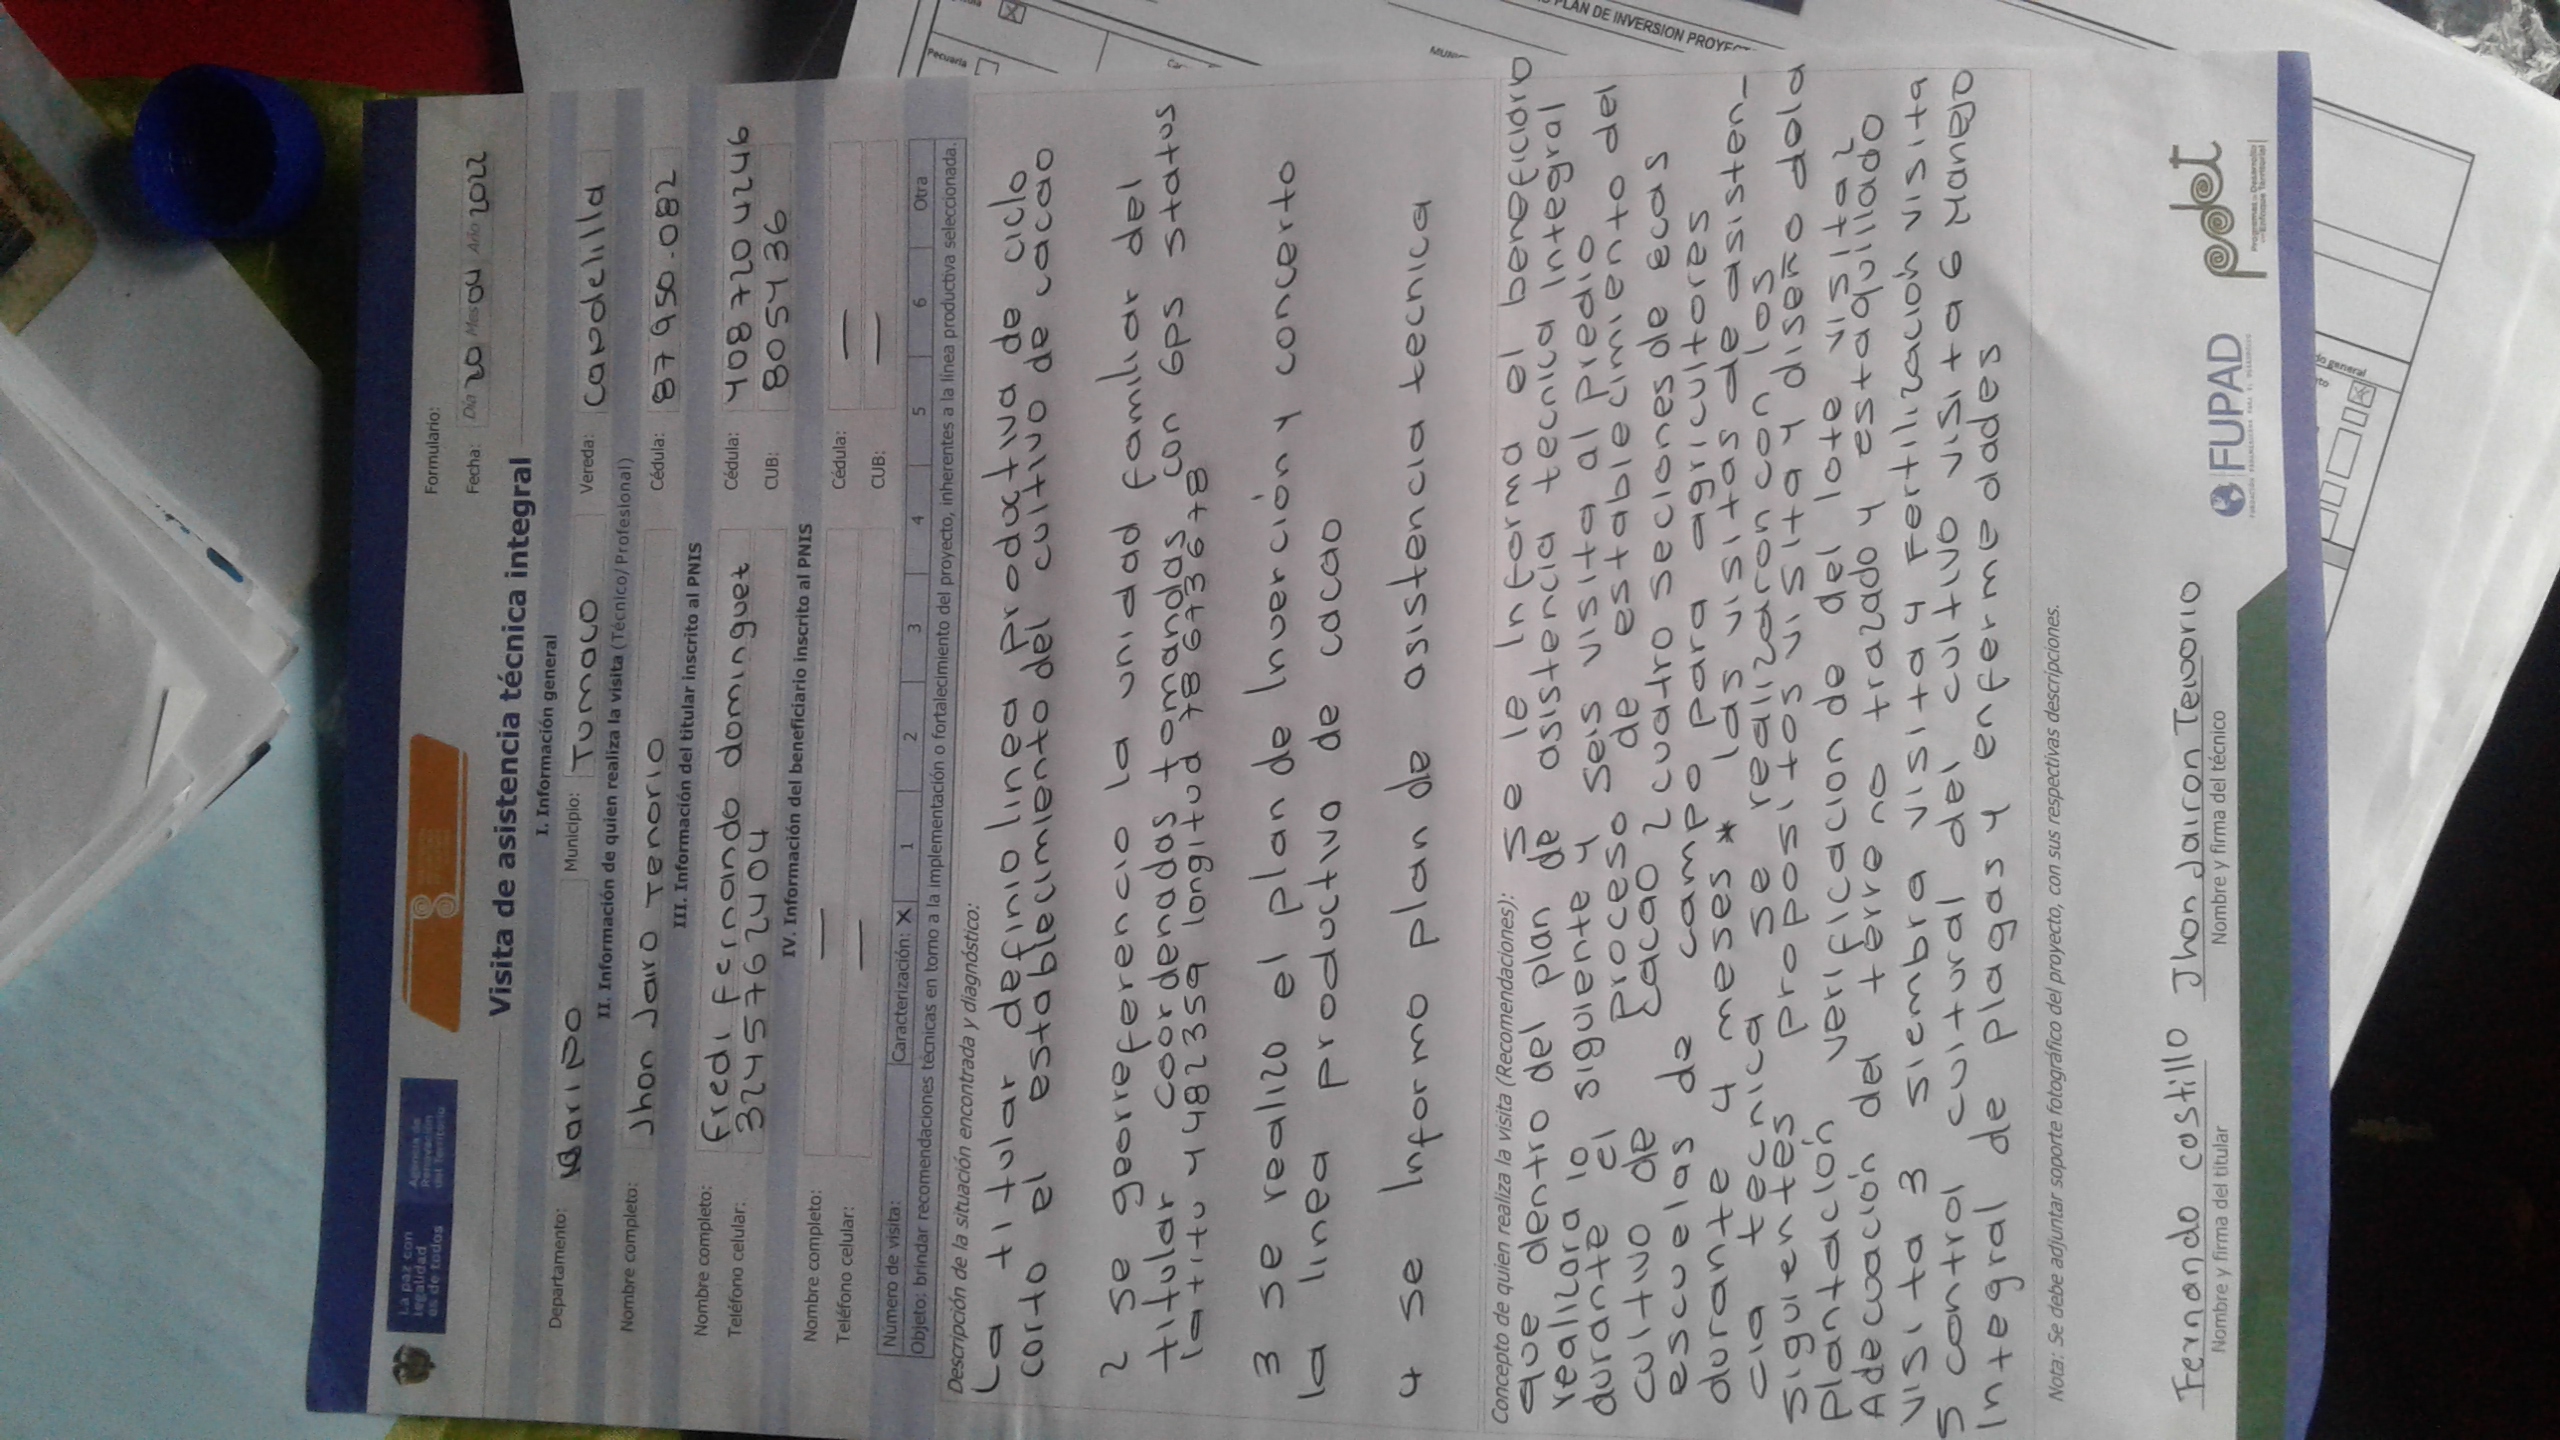 La paz con
legalidad
es de todos
Agencia de
Renovación
del Territorio
Formulario:
Fecha: Día 20 Mes 04 Año 2022
Visita de asistencia técnica integral
I. Información general
Departamento: Nariño Municipio: Tumaco Vereda: Candelilla
II. Información de quien realiza la visita (Técnico/ Profesional)
Nombre completo: Jhon Jairo Tenorio Cédula: 87950.082
III. Información del titular inscrito al PNIS
Nombre completo: Fredi Fernando dominguet Cédula: 4087204246
Teléfono celular: 3245762404 CUB: 805436
IV. Información del beneficiario inscrito al PNIS
Nombre completo: — Cédula: —
Teléfono celular: — CUB: —
Número de visita: Caracterización: X 1 2 3 4 5 6 Otra
Objeto: brindar recomendaciones técnicas en torno a la implementación o fortalecimiento del proyecto, inherentes a la línea productiva seleccionada.
Descripción de la situación encontrada y diagnóstico:
La titular definio linea productiva de ciclo
corto el establecimiento del cultivo de cacao
2 se georreferencio la unidad familiar del
titular coordenadas tomandas con Gps status
latitu 4482359 longitud 7867336778
3 se realizo el plan de Inverción y concerto
la linea productivo de cacao
4 se Informo plan de asistencia tecnica
Concepto de quien realiza la visita (Recomendaciones): Se le Informa el beneficiorio
que dentro del plan de asistencia tecnica Integral
realizara lo siguiente y seis visita al predio
durante el proceso de establecimiento del
cultivo de cacao 2 cuatro seciones de ecas
escuelas de campo para agricultores
durante 4 meses * las visitas de asisten-
cia tecnica se realizaron con los
siguientes propositos visita y diseño dela
plantación verificacion de del lote visita 2
Adecuación del terreno trazado y estaquillado
visita 3 siembra visita 4 Fertilización visita
5 control cultural del cultivo visita 6 Manejo
Integral de plagas y enfermedades
Nota: Se debe adjuntar soporte fotográfico del proyecto, con sus respectivas descripciones.
Fernando castillo Jhon Jairon Tenorio
Nombre y firma del titular Nombre y firma del técnico
FUPAD
pdet
Programas de Desarrollo
con Enfoque Territorial
PLAN DE INVERSION
Pecuaria